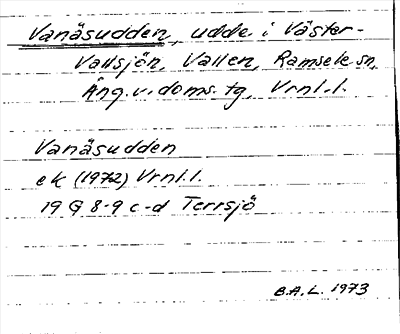 Vanäsudden, udde i Väster-
Vallsjön, Vallen, Ramsele sn,
Ång. v. doms. tg, Vrnl.l.
Vanäsudden
ek (1972) Vrnl.l.
19 G 8-9 c-d Terrsjö
B.A.L. 1973